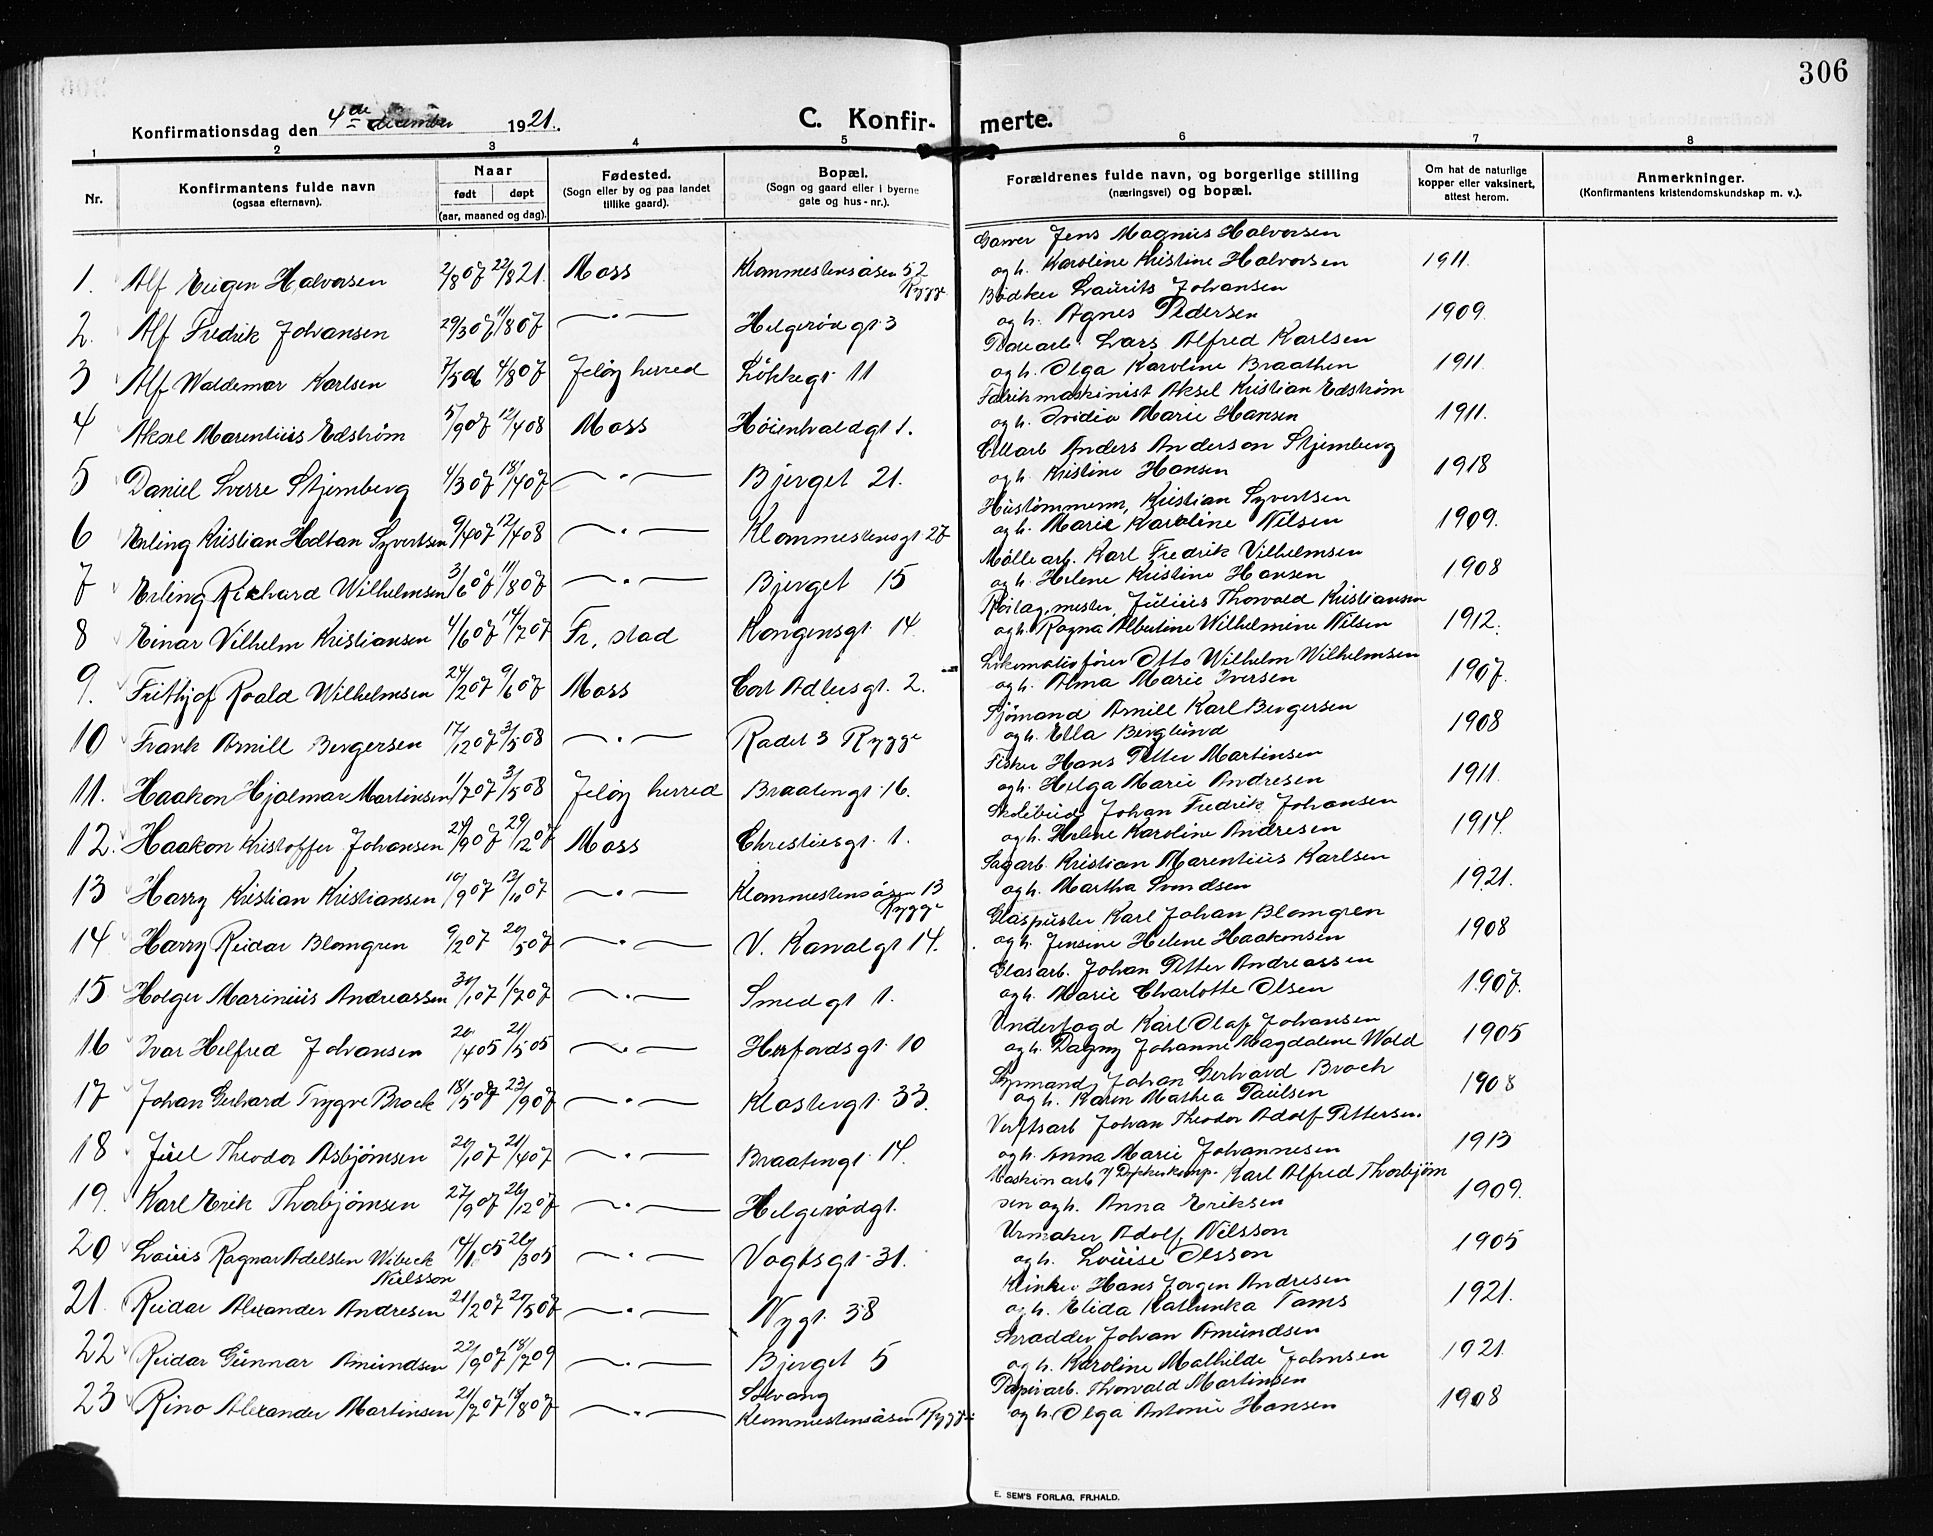 306
Konfirmationsdag den 4de december 1921.
C. Konfirmerte.
1 2 3 4 5 6 7 8
Nr.
Konfirmantens fulde navn
(ogsaa efternavn).
Naar
født døpt
(aar, maaned og dag).
Fødested.
(Sogn eller by og paa landet
tillike gaard).
Bopæl.
(Sogn og gaard eller i byerne
gate og hus-nr.).
Forældrenes fulde navn, og borgerlige stilling
(næringsvei) og bopæl.
Om hat de naturlige
kopper eller vaksinert,
attest herom.
Anmerkninger.
(Konfirmantens kristendomskundskap m. v.).
1. Alf Eugen Halvorsen 2/8 07 22/8 21. Moss Klommestensåsen 52 Rygge Garver Jens Magnus Halvorsen
og h. Karoline Kristine Halvorsen 1911.
2. Alf Fredrik Johansen 29/3 07 11/8 07 —"— Helgerød gt 3 Bødker Laurits Johansen
og h. Agnes Pedersen 1909.
3 Alf Waldemar Karlsen 7/5 06 4/8 07 Jeløy herred Løkkegt 11 Lars Alfred Karlsen
og h. Olga Karoline Braathen 1911.
4 Aksel Marentius Edstrøm 5/9 07 12/4 08 Moss Høienhaldgt 1. Fabrikmaskinist Aksel Kristian Edstrøm
og h. Ovidia Marie Hansen 1911.
5 Daniel Sverre Stjernberg 4/3 07 18/4 07 —"— Bjerget 21. Cellarb Anders Anderson Stjernberg
og h. Kristine Hansen 1918
6 Erling Kristian Syvertsen 9/4 07 12/4 08 —"— Klommestensgt 27 Hustømmerm, Kristian Syvertsen
og h. Marie Karoline Nilsen 1909.
7 Erling Richard Wilhelmsen 3/6 07 11/8 07 —"— Bjerget 15 Møllearb. Karl Fredrik Vilhelmsen
og h. Helene Kristine Hansen 1908
8 Einar Vilhelm Kristiansen 4/6 07 14/7 07 Fr. stad Kongensgt 14. Julius Thorvald Kristiansen
og h. Ragna Albertine Wilhelmine Nilsen 1912.
9. Frithjof Roald Wilhelmsen 24/2 07 9/6 07 Moss Cort Adlersgt. 2. Lokomotivfører Otto Wilhelm Wilhelmsen
og h. Alma Marie Iversen 1907.
10 Frank Arnill Bergersen 17/12 07 3/5 08 —"— Radet 3 Rygge Sjømand Arnill Karl Bergersen
og h. Ella Berglund 1908
11. Haakon Hjalmar Martinsen 1/7 07 3/5 08 Jeløy herred Braatengt. 16. Fisker Hans Petter Martinsen
og h. Helga Marie Andresen 1911.
12. Haakon Kristoffer Johansen 21/9 07 29/12 07 Moss Christiesgt. 1. Johan Fredrik Johansen
og h. Helene Karoline Andresen 1914.
13 Harry Kristian Kristiansen 10/9 07 13/10 07 —"— Klommestensåsen 13 Rygge Sagarb. Kristian Marentius Karlsen
og h. Martha Svendsen 1921.
14 Harry Reidar Blomgren 9/2 07 20/5 07 —"— V. Kanalgt 14. Glaspuster Karl Johan Blomgren
og h. Jensine Helene Haakonsen 1908
15 Holger Marinius Andreassen 30/1 07 1/7 07 —"— Smedgt 1. Glasarb. Johan Petter Andreassen
og h. Marie Charlotte Olsen 1907.
16 Ivar Helfred Johansen 20/4 05 21/5 05 —"— Herfordsgt. 10 Underfogd Karl Olaf Johansen
og h. Dagny Johanne Magdalene Wold 1905
17 Johan Gerhard Trygve Brock 18/5 07 23/9 07 —"— Klostergt. 33. Johan Gerhard Broch
og h. Karen Mathea Paulsen 1908
18 Juel Theodor Asbjørnsen 20/1 07 21/4 07 —"— Braatengt 14. Verftsarb Johan Theodor Adolf Pettersen.
og h. Anna Marie Johannesen 1913
19. Karl Erik Thorbjørnsen 27/9 07 26/12 07 —"— Helgerødgt. Maskinarb v/ Dykerkomp. Karl Alfred Thorbjørn
sen og h. Anna Eriksen 1909.
20 Louis Ragnar Adelsten Wibeck
Nielsson 14/1 05 26/3 05 —"— Vogtsgt. 31. Urmaker Adolf Nilsson
og h. Louise Olsson 1905
21. Reidar Alexander Andresen 21/2 07 27/5 07 —"— Nygt. 38 Klinker Hans Jørgen Andresen
og h. Elida Kathinka Tams 1921.
22 Reidar Gunnar Amundsen 22/9 07 18/7 09 —"— Bjerget 5 Skrædder Johan Amundsen
og h. Karoline Mathilde Johnsen 1921
23 Rino Alexander Martinsen 21/7 07 18/8 07 —"— Solvang
Klommestensåsen Rygge Papirarb. Thorvald Martinsen
og h. Olga Antonie Hansen 1908
E. SEM'S FORLAG, FR.HALD.